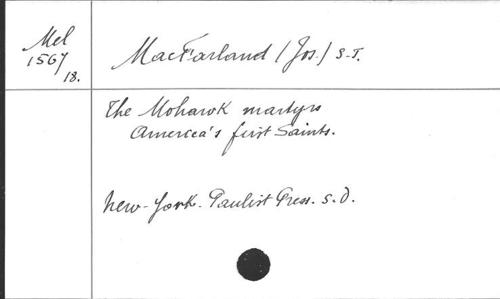 Mel
1567
18.
MacFarland (Jos.) S.J.
The Mohawk martyrs
America's first Saints.
New-York. Paulist Press. S.D.